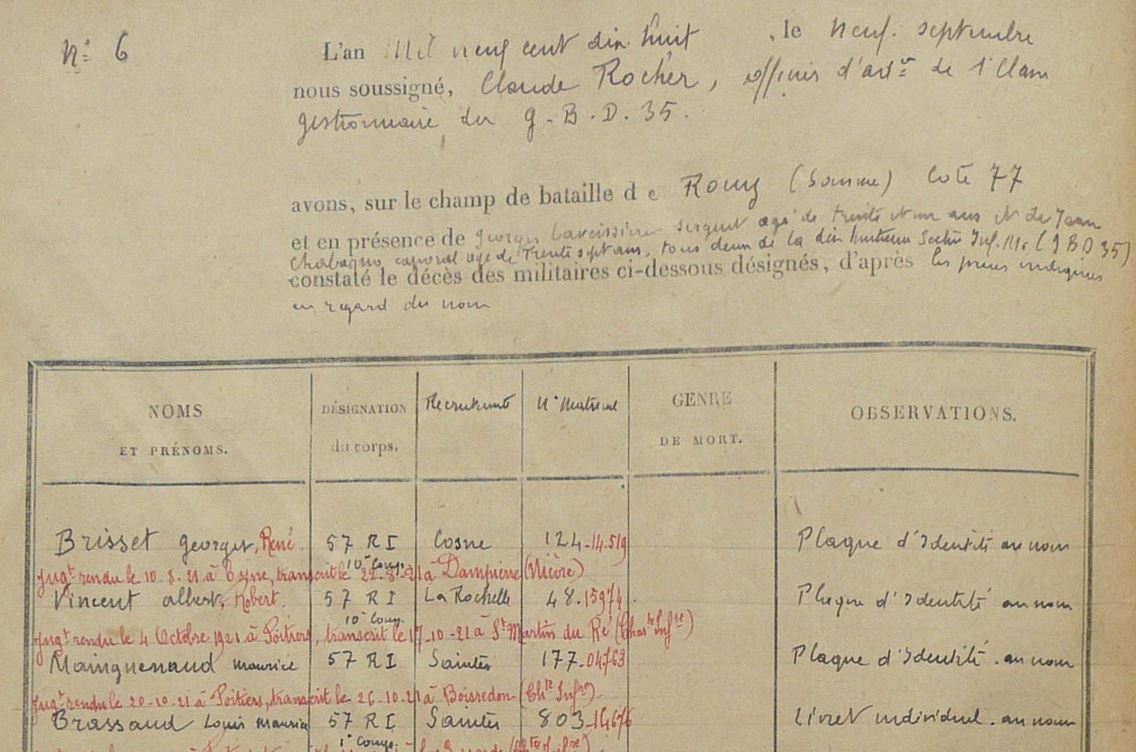 N° 6
L'an Mil neuf cent dix huit, le neuf septembre
nous soussigné, Claude Rocher, officier d'adon de 1e Classe
gestionnaire du G.B.D. 35.
avons, sur le champ de bataille de Rouy (Somme) Cote 77
et en présence de Georges sergent agé de trente et un ans et de Jean
caporal agé de trente sept ans, tous deux de la dix huitieme Section Inf. Mre (G B D 35)
constaté le décès des militaires ci-dessous désignés, d'après les pieces indiquées
en regard du nom
NOMS ET PRÉNOMS. DÉSIGNATION du corps. Recrutement N° Matricule GENRE DE MORT. OBSERVATIONS.
Brisset Georges, René 57 RI Cosne 124-14.519 Plaque d'Identité au nom
10e Comp.
Jugt rendu le 10-8-21 à Cosne, transcrit le 22-8-21 à Dampierre (Nièvre)
Vincent Albert, Robert. 57 RI La Rochelle 48-15974 Plaque d'Identité au nom
10e Comp.
Jugt rendu le 4 Octobre 1921 à Poitiers, transcrit le 17-10-21 à St Martin du Ré (Chaste Infre)
Mainguenaud Maurice 57 RI Saintes 177-04763 Plaque d'Identité. au nom
Jugt rendu le 20-10-21 à Poitiers, transcrit le 26-10-21 à Boisredon (Chte Infre)
Brassaud Louis Maurice 57 RI Saintes 803-14676 Livret individuel. au nom
1e Comp.